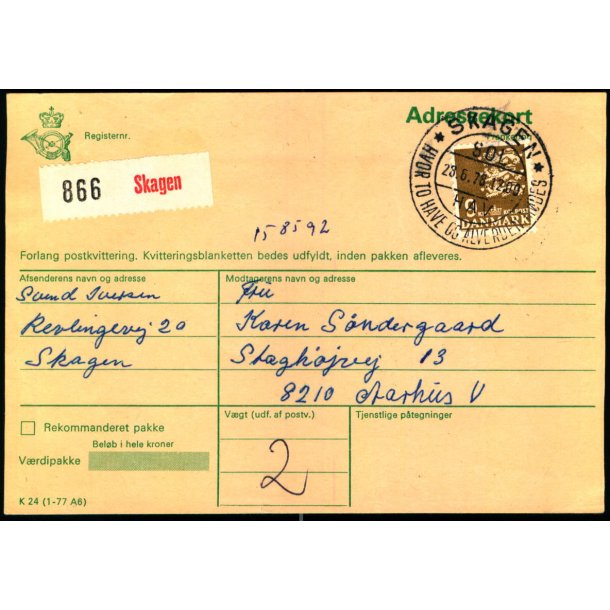 Adressekort
Registernr.
866 Skagen
★ SKAGEN ★
HVOR TO HAVE OG ALVERDEN MØDES
SOL
28.6.78
HAV
DANMARK
158592
Forlang postkvittering. Kvitteringsblanketten bedes udfyldt, inden pakken afleveres.
Afsenderens navn og adresse
Svend Iversen
Revlingevej 20
Skagen
Modtagerens navn og adresse
Fru
Karen Söndergaard
Staghøjvej 13
8210 Aarhus V
Rekommanderet pakke
Beløb i hele kroner
Værdipakke
Vægt (udf. af postv.)
2
Tjenstlige påtegninger
K 24 (1-77 A6)